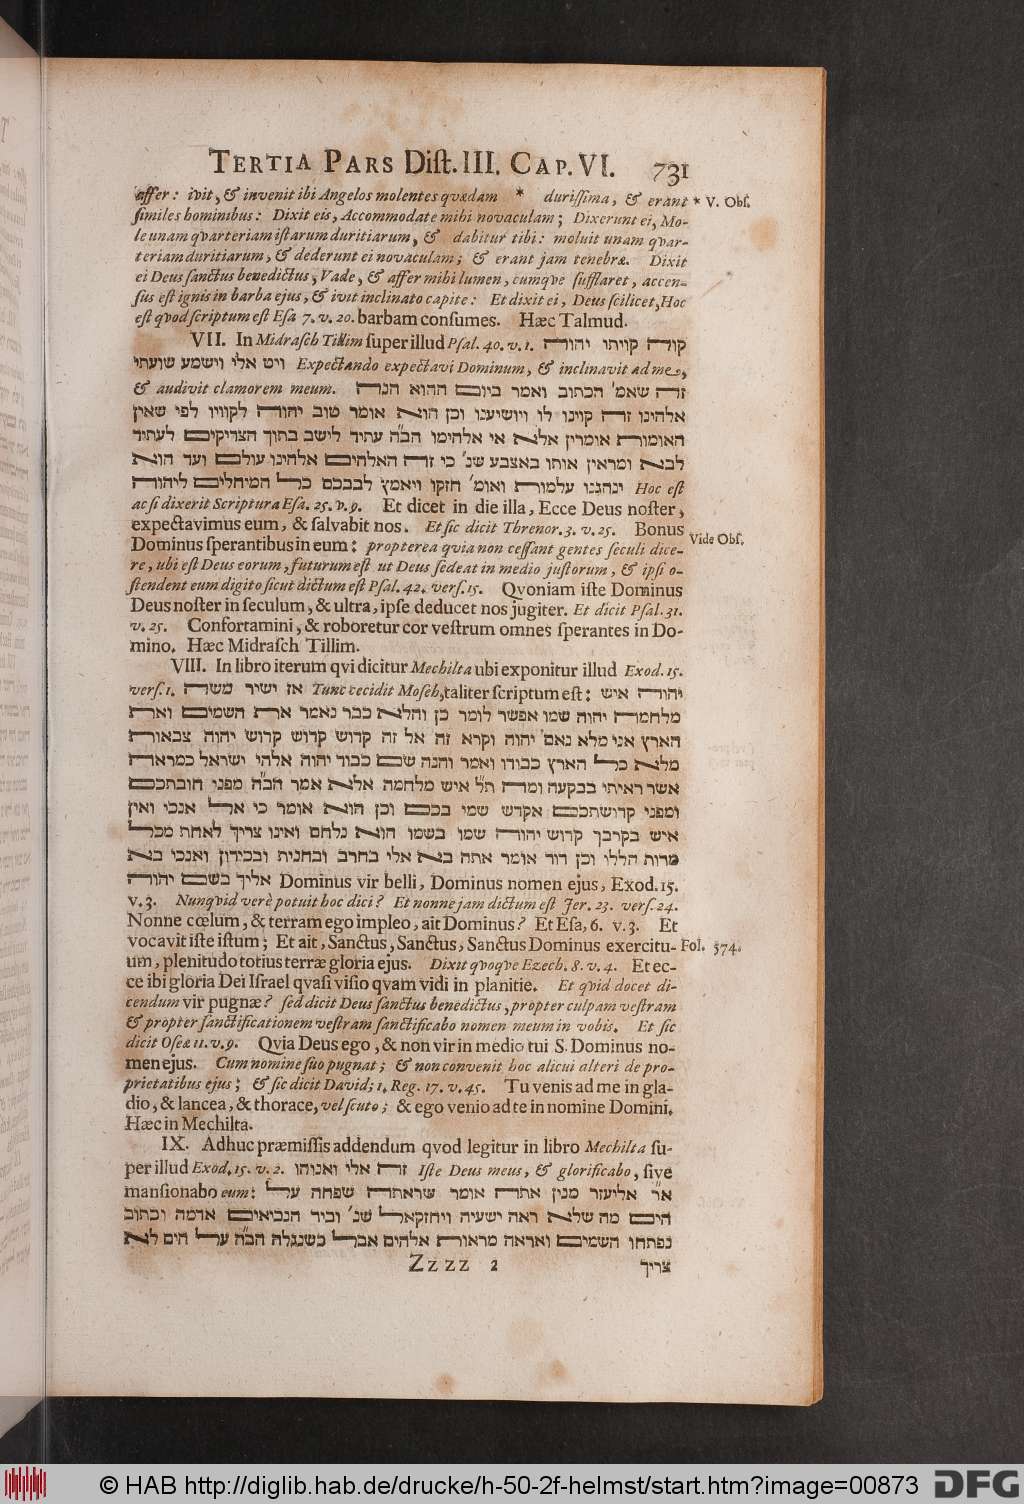 TERTIA PARS Dist. III. CAP. VI. 731
affer: ivit, & invenit ibi Angelos molentes quædam * durissima, & erant * V. Obs.
similes hominibus: Dixit eis, Accommodate mihi novaculam; Dixerunt ei, Mo-
le unam qvarteriam istarum duritiarum, & dabitur tibi: moluit unam qvar-
teriam duritiarum, & dederunt ei novaculam; & erant jam tenebræ. Dixit
ei Deus sanctus benedictus, Vade, & affer mihi lumen, cumqve sufflaret, accen-
sus est ignis in barba ejus, & ivit inclinato capite: Et dixit ei, Deus scilicet, Hoc
est qvod scriptum est Esa 7. v. 20. barbam consumes. Hæc Talmud.
VII. In Midrasch Tillim super illud Psal. 40. v. 1. קוה קויתי יהוה
ויט אלי וישמע שועתי Expectando expectavi Dominum, & inclinavit ad me,
& audivit clamorem meum. זה שאמ' הכתוב ואמר ביום ההוא הנה
אלהינו זה קוינו לו ויושיענו וכן הוא אומר טוב יהוה לקוויו לפי שאין
האומות אומרין אלא אי אלהימו הב״ה עתיד לישב בתוך הצדיקים לעתיד
לבא ומראין אותו באצבע שנ' כי זה האלהים אלהינו עולם ועד הוא
ינהגנו עלמות ואומ' חזקו ויאמץ לבבכם כל המיחלים ליהוה Hoc est
ac si dixerit Scriptura Esa. 25. v. 9. Et dicet in die illa, Ecce Deus noster,
expectavimus eum, & salvabit nos. Et sic dicit Threnor. 3. v. 25. Bonus
Dominus sperantibus in eum: propterea qvia non cessant gentes seculi dice- Vide Obs.
re, ubi est Deus eorum, futurum est ut Deus sedeat in medio justorum, & ipsi o-
stendent eum digito sicut dictum est Psal. 42. vers. 15. Qvoniam iste Dominus
Deus noster in seculum, & ultra, ipse deducet nos jugiter. Et dicit Psal. 31.
v. 25. Confortamini, & roboretur cor vestrum omnes sperantes in Do-
mino. Hæc Midrasch Tillim.
VIII. In libro iterum qvi dicitur Mechilta ubi exponitur illud Exod. 15.
vers. 1. אז ישיר משה Tunc cecidit Moseh, taliter scriptum est: יהוה איש
מלחמה יהוה שמו אפשר לומר כן והלא כבר נאמר את השמים ואת
הארץ אני מלא נאם יהוה וקרא זה אל זה קדוש קדוש קדוש יהוה צבאות
מלא כל הארץ כבודו ואמר והנה שם כבוד יהוה אלהי ישראל כמראה
אשר ראיתי בבקעה ומה ת״ל איש מלחמה אלא אמר הב״ה מפני חובתכם
ומפני קדושתכם אקדש שמי בכם וכן הוא אומר כי אל אנכי ואין
איש בקרבך קדוש יהוה שמו בשמו הוא נלחם ואינו צריך לאחת מכל
מדות הללו וכן דוד אומר אתה בא אלי בחרב ובחנית ובכידון ואנכי בא
אליך בשם יהוה Dominus vir belli, Dominus nomen ejus, Exod. 15.
v. 3. Nunqvid verè potuit hoc dici? Et nonne jam dictum est Jer. 23. vers. 24.
Nonne cœlum, & terram ego impleo, ait Dominus? Et Esa, 6. v. 3. Et
vocavit iste istum; Et ait, Sanctus, Sanctus, Sanctus Dominus exercitu- Fol. 374.
um, plenitudo totius terræ gloria ejus. Dixit qvoqve Ezech. 8. v. 4. Et ec-
ce ibi gloria Dei Israel qvasi visio qvam vidi in planitie. Et qvid docet di-
cendum vir pugnæ? sed dicit Deus sanctus benedictus, propter culpam vestram
& propter sanctificationem vestram sanctificabo nomen meum in vobis. Et sic
dicit Oseæ 11. v. 9. Qvia Deus ego, & non vir in medio tui S. Dominus no-
men ejus. Cum nomine suo pugnat; & non convenit hoc alicui alteri de pro-
prietatibus ejus; & sic dicit David; 1. Reg. 17. v. 45. Tu venis ad me in gla-
dio, & lancea, & thorace, vel scuto; & ego venio ad te in nomine Domini.
Hæc in Mechilta.
IX. Adhuc præmissis addendum qvod legitur in libro Mechilta su-
per illud Exod. 15. v. 2. זה אלי ואנוהו Iste Deus meus, & glorificabo, sive
mansionabo eum: א״ר אליעזר מנין אתה אומר שראתה שפחה על
הים מה שלא ראה ישעיה ויחזקאל שנ' וביד הנביאים אדמה וכתוב
נפתחו השמים ואראה מראות אלהים אבל כשנגלה הב״ה על הים לא
Zzzz 2 צריך
© HAB http://diglib.hab.de/drucke/h-50-2f-helmst/start.htm?image=00873 DFG